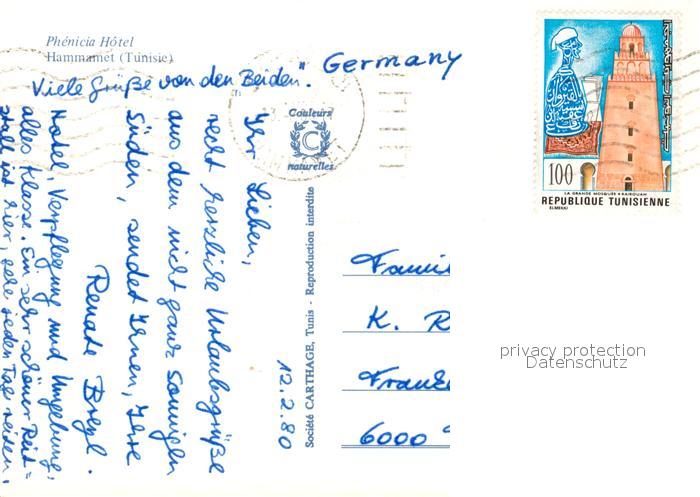 Phénicia Hôtel
Hammamet (Tunisie)
Viele Grüße von den Beiden".
Germany
Couleurs
C
naturelles
12.2.80
Ihr Lieben,
recht herzliche Urlaubsgrüße
aus dem nicht ganz sonnigen
Süden, sendet Ihnen, Ihre
Renate
Hotel, Verpflegung und Umgebung,
alles Klasse. Ein sehr schöner Reit=
stall ist hier, gehe jeden Tag reiten.
Société CARTHAGE, Tunis - Reproduction interdite
Famil
K. R
Frank
6000
100
LA GRANDE MOSQUÉE - KAIROUAN
REPUBLIQUE TUNISIENNE
ELMEKKI
privacy protection
Datenschutz